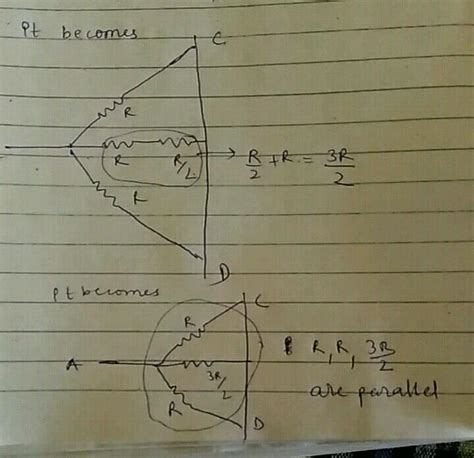 Pt becomes
C
R
R R/2 → R/2 + R = 3R/2
R
D
Pt becomes
C
R
A 3R/2 R, R, 3R/2
R are parallel
D